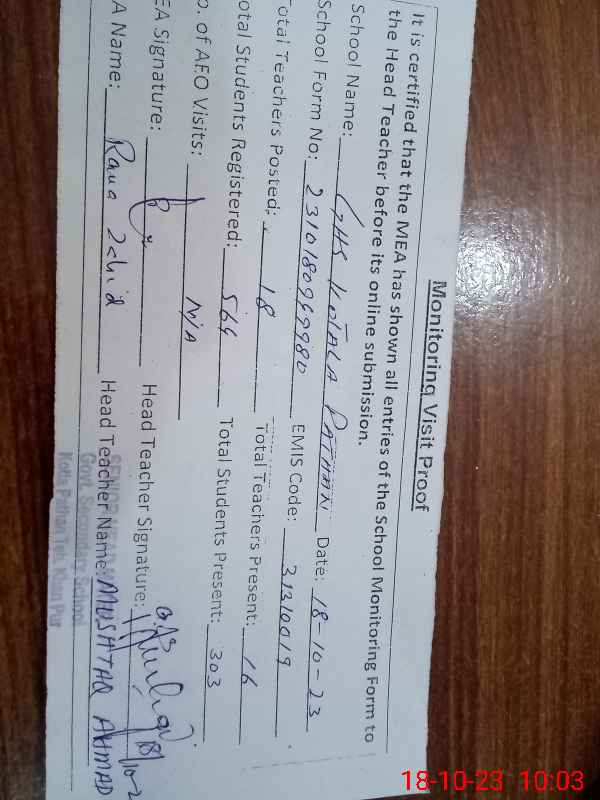 Monitoring Visit Proof
It is certified that the MEA has shown all entries of the School Monitoring Form to
the Head Teacher before its online submission.
School Name: GHS KOTALA PATHAN Date: 18-10-23
School Form No: 2310180969980 EMIS Code: 31310019
Total Teachers Posted: 18 Total Teachers Present: 16
otal Students Registered: 564 Total Students Present: 303
o. of AEO Visits: N/A
EA Signature: Head Teacher Signature:
A Name: Rana Zahid Head Teacher Name: MUSHTAQ AHMAD
Govt. Secondary School
Kotla Pathan Teh. Khan Pur
18-10-23 10:03